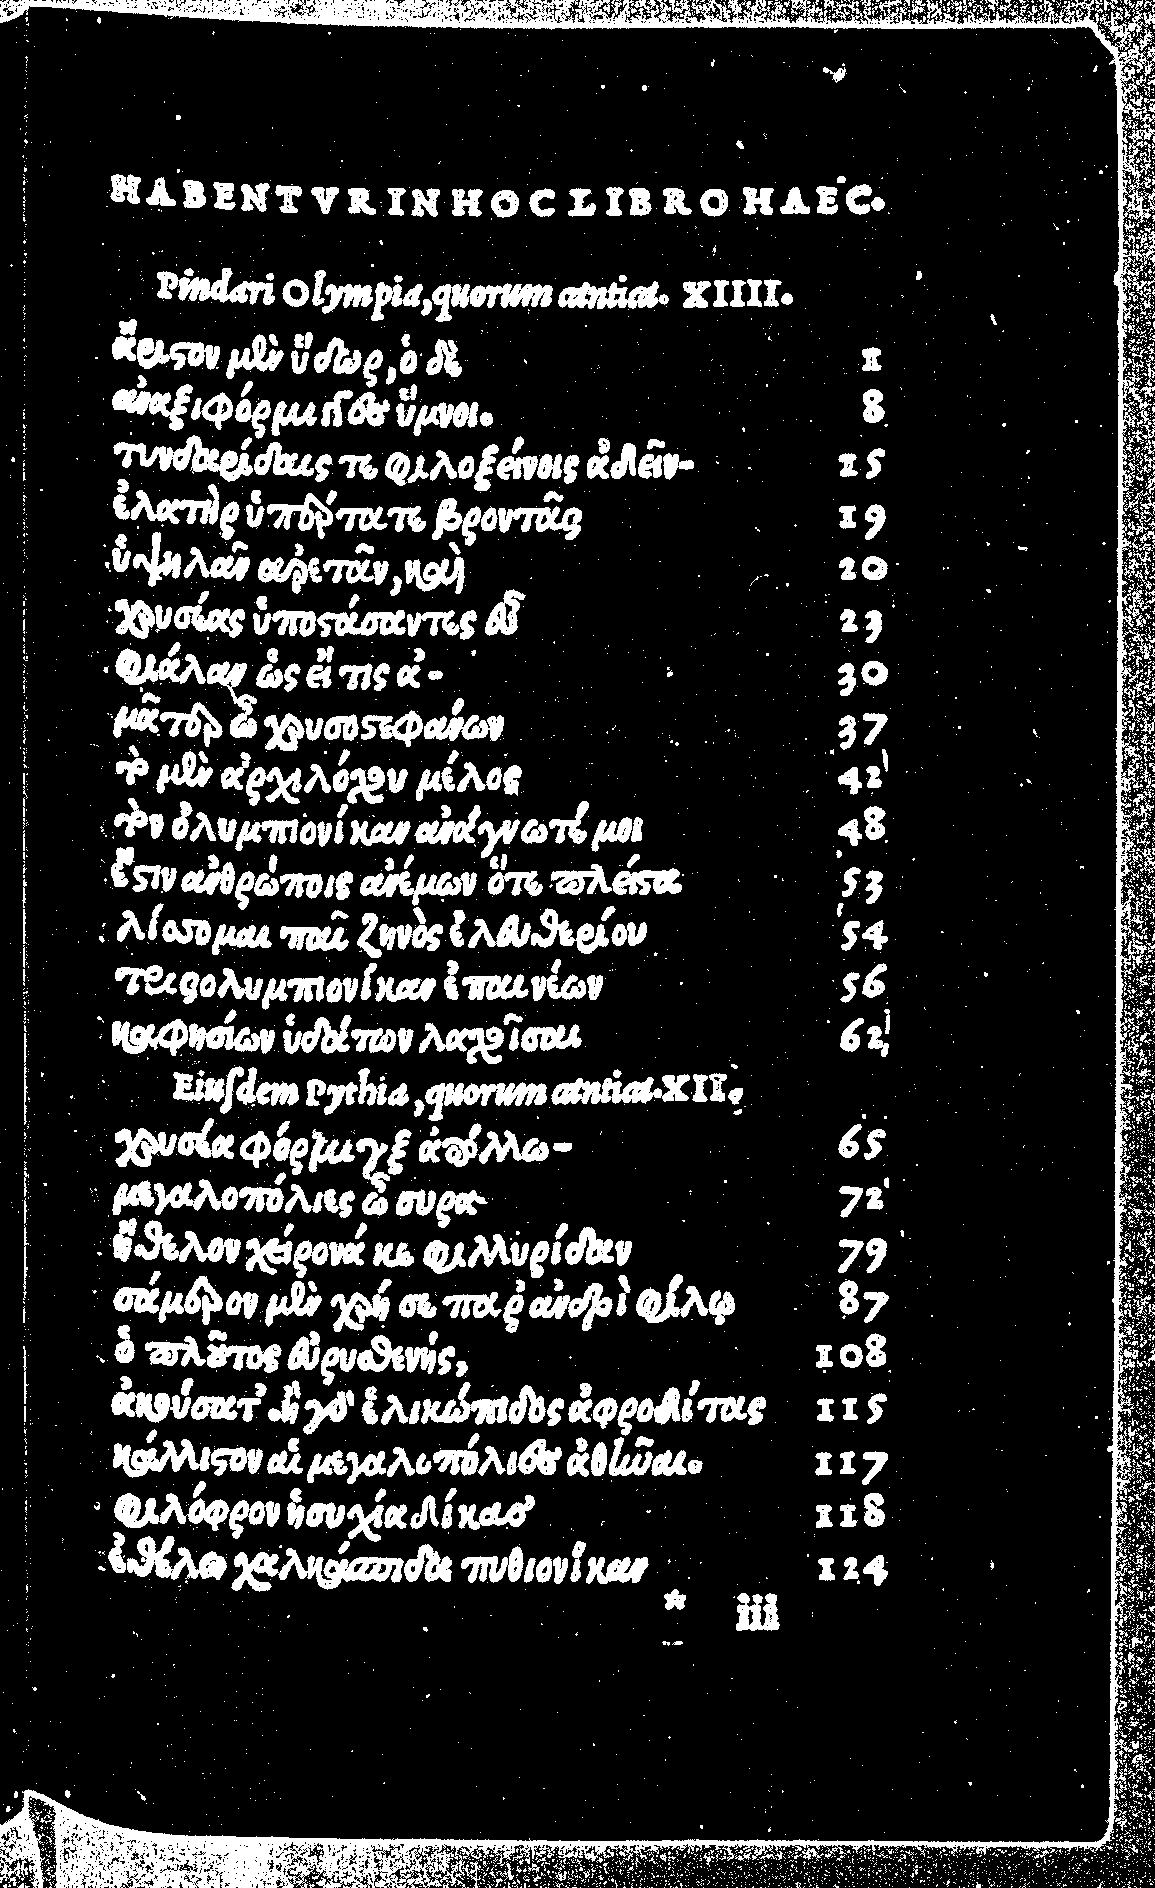 HABENTVR IN HOC LIBRO HAEC.
Pindari Olympia, quorum initia. XIIII.
ἄριστον μὲν ὕδωρ, ὁ δὲ 1
ἀναξιφόρμιγγες ὕμνοι. 8
τυνδαρίδαις τε φιλοξείνοις ἁδεῖν- 15
ἐλατὴρ ὑπέρτατε βροντᾶς 19
ὑψηλᾶν ἀρετᾶν, καὶ 20
χρυσέας ὑποστάσαντες εὖ 23
φιάλαν ὡς εἴ τις ἀ- 30
μᾶτερ ὦ χρυσοστεφάνων 37
τὸ μὲν ἀρχιλόχου μέλος 42
τὸν ὀλυμπιονίκαν ἀνάγνωτέ μοι 48
ἔστιν ἀνθρώποις ἀνέμων ὅτε πλείστα 53
λίσσομαι παῖ ζηνὸς ἐλευθερίου 54
τρισολυμπιονίκαν ἐπαινέων 56
καφησίων ὑδάτων λαχοῖσαι 62
Eiusdem Pythia, quorum initia. XII.
χρυσέα φόρμιγξ ἀπόλλω- 65
μεγαλοπόλιες ὦ συρα- 72
ἤθελον χείρονά κε φιλλυρίδαν 79
σάμερον μὲν χρή σε παρ' ἀνδρὶ φίλῳ 87
ὁ πλοῦτος εὐρυσθενής, 108
ἀκούσατ' ἢ γὰρ ἑλικώπιδος ἀφροδίτας 115
κάλλιστον αἱ μεγαλοπόλιες ἀθῆναι. 117
φιλόφρον ἡσυχία δίκας 118
ἐθέλω χαλκάσπιδα πυθιονίκαν 124
* iii